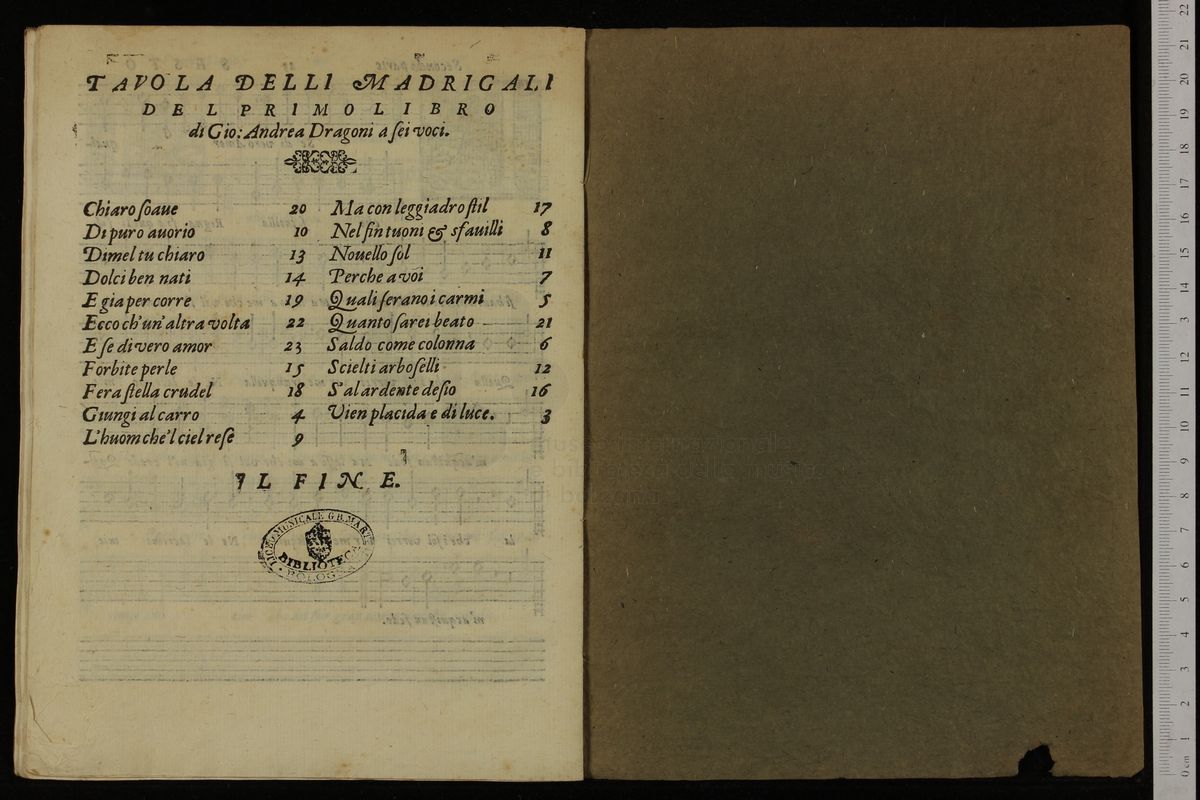 TAVOLA DELLI MADRIGALI
DEL PRIMO LIBRO
di Gio: Andrea Dragoni a ſei voci.
Chiaro ſoaue 20
Di puro auorio 10
Dimel tu chiaro 13
Dolci ben nati 14
E gia per corre 19
Ecco ch'un'altra volta 22
E ſe di vero amor 23
Forbite perle 15
Fera ſtella crudel 18
Giungi al carro 4
L'huom che'l ciel reſe 9
Ma con leggiadro ſtil 17
Nel ſin tuoni & sfauilli 8
Nouello ſol 11
Perche a voi 7
Quali ſerano i carmi 5
Quanto ſarei beato 21
Saldo come colonna 6
Scielti arboſelli 12
S'al ardente deſio 16
Vien placida e di luce. 3
IL FINE.
LICEO MUSICALE G.B. MARTINI
BIBLIOTECA
BOLOGNA
museo internazionale
e biblioteca della musica
di bologna
22
21
20
19
18
17
16
15
14
13
12
11
10
9
8
7
6
5
4
3
2
1
0 cm